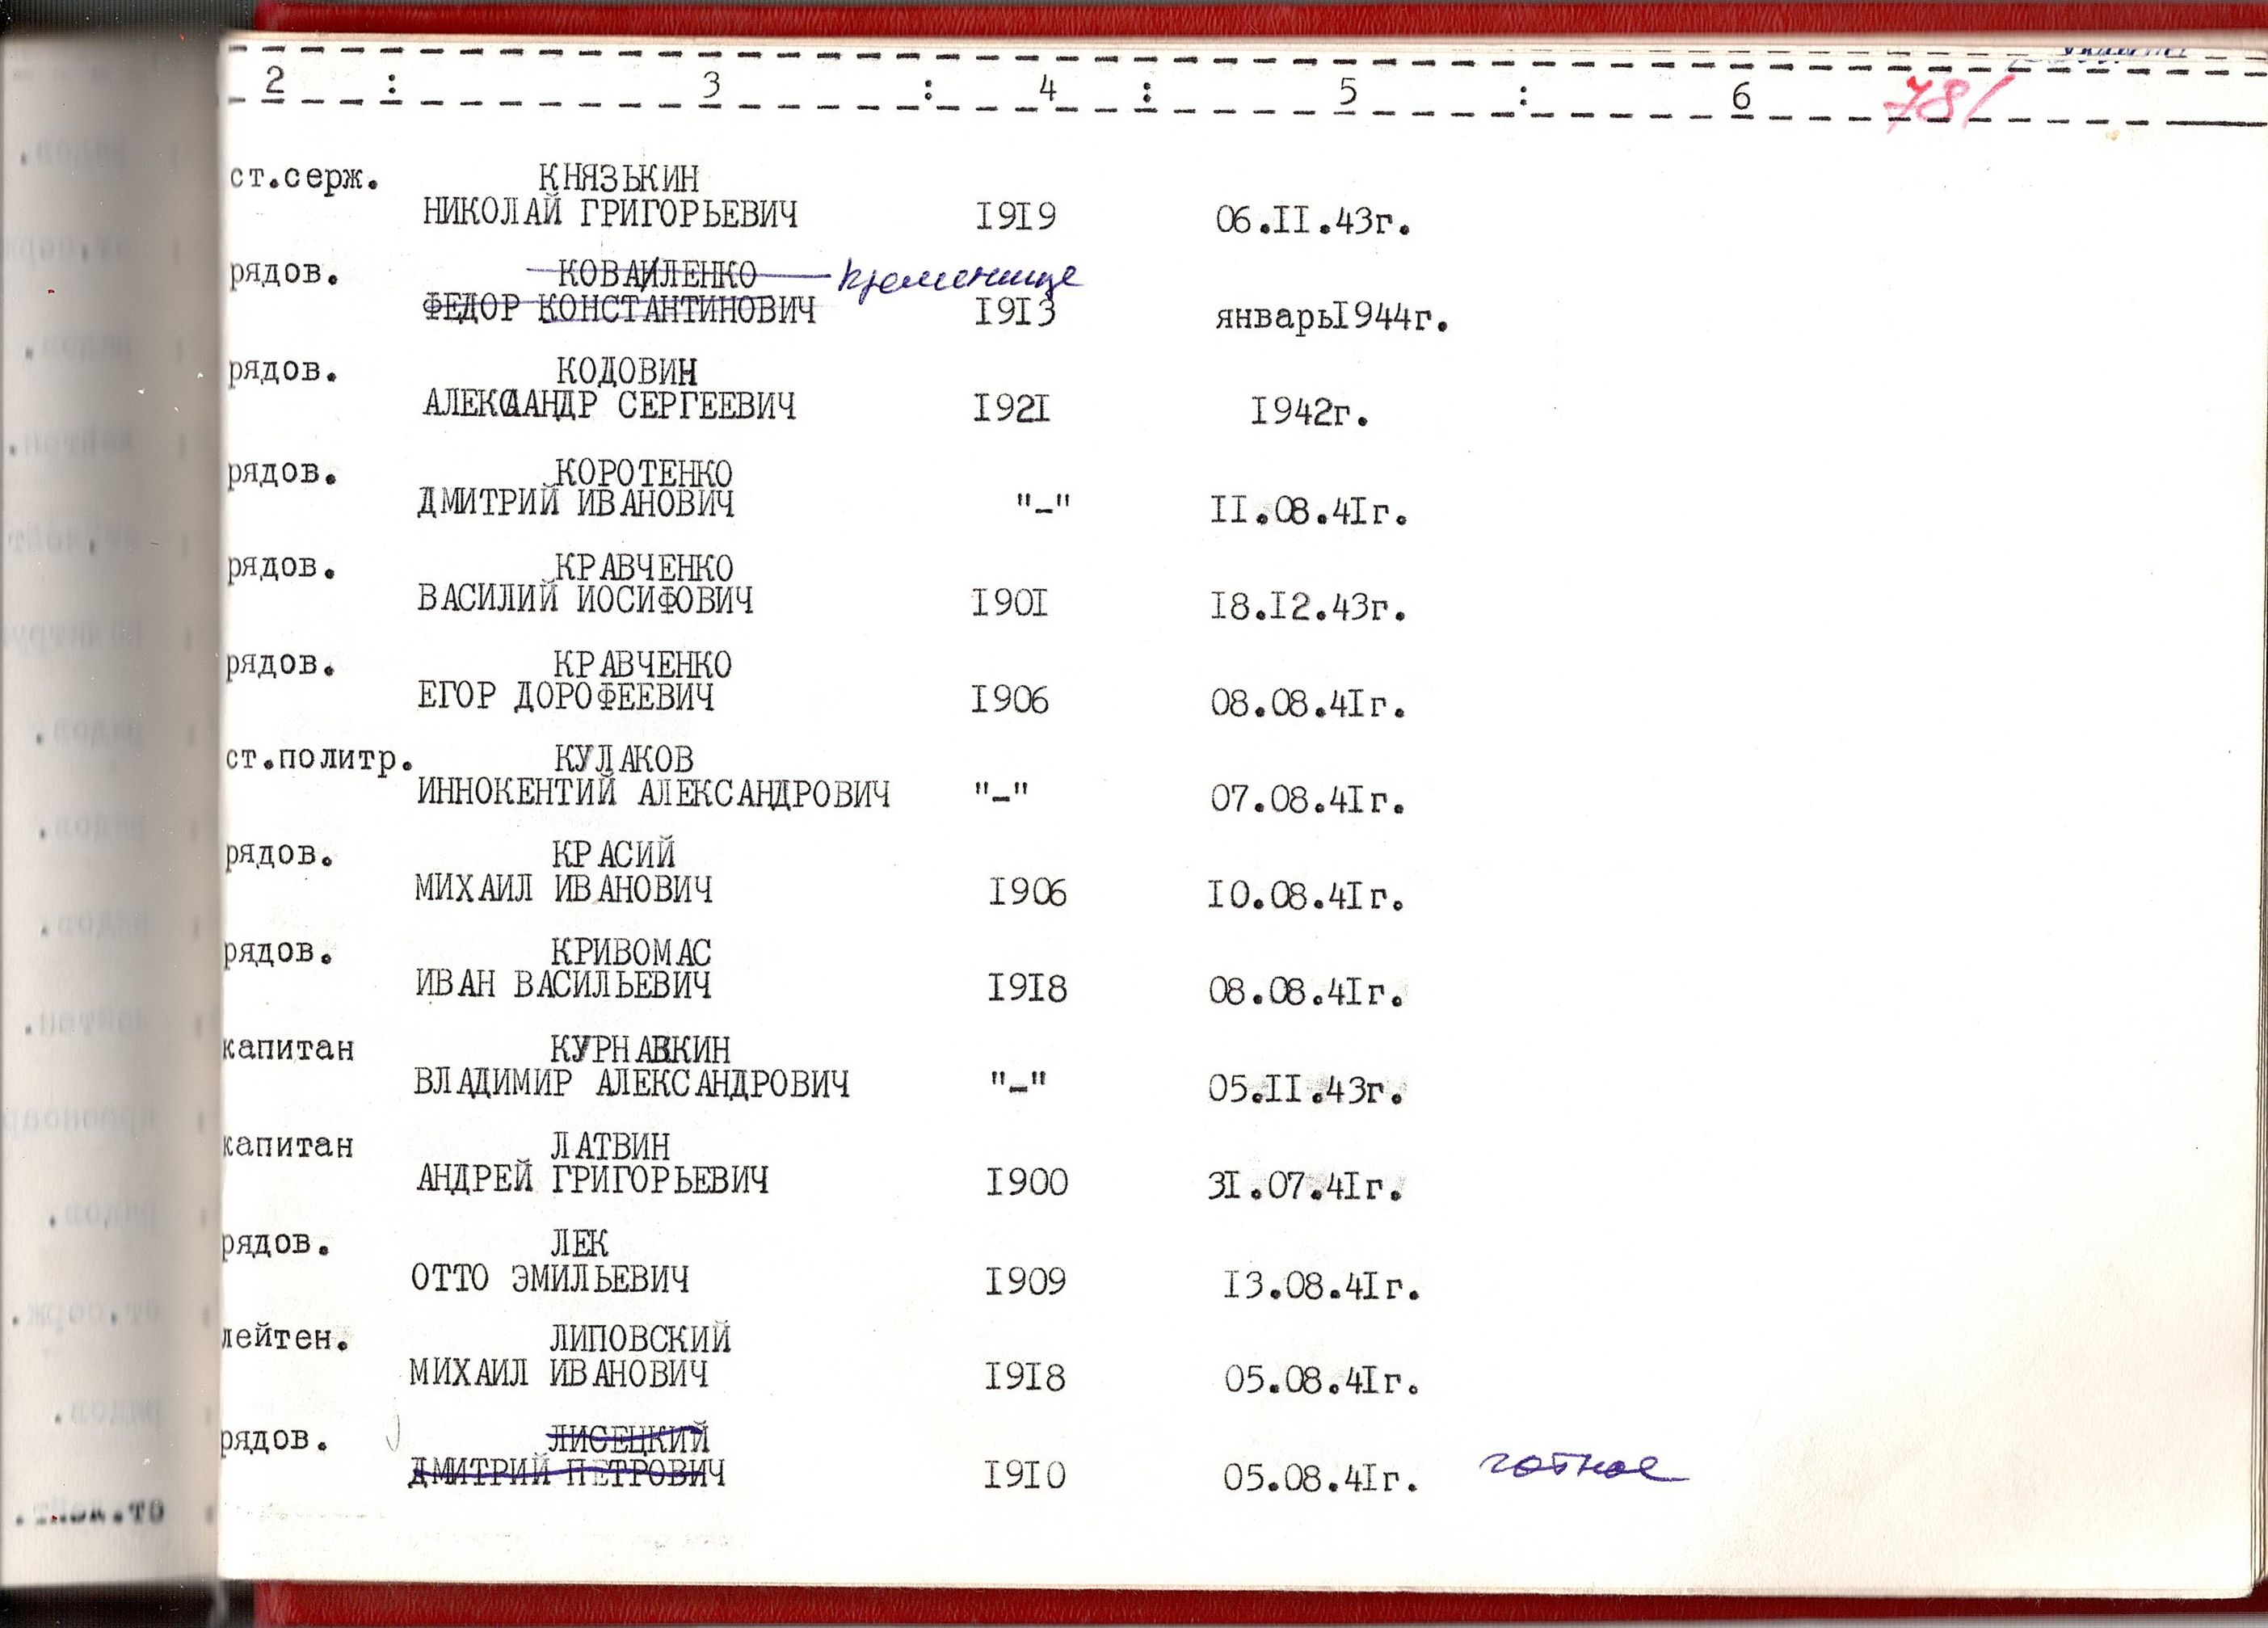 2 : 3 : 4 : 5 : 6 781
ст.серж. КНЯЗЬКИН
НИКОЛАЙ ГРИГОРЬЕВИЧ I9I9 06.II.43г.
рядов. КОВАИЛЕНКО Кременище
ФЕДОР КОНСТАНТИНОВИЧ I9I3 январьI944г.
рядов. КОДОВИН
АЛЕКСАНДР СЕРГЕЕВИЧ I92I I942г.
рядов. КОРОТЕНКО
ДМИТРИЙ ИВАНОВИЧ "-" II.08.4Iг.
рядов. КРАВЧЕНКО
ВАСИЛИЙ ИОСИФОВИЧ I90I I8.I2.43г.
рядов. КРАВЧЕНКО
ЕГОР ДОРОФЕЕВИЧ I906 08.08.4Iг.
ст.политр. КУЛАКОВ
ИННОКЕНТИЙ АЛЕКСАНДРОВИЧ "-" 07.08.4Iг.
рядов. КРАСИЙ
МИХАИЛ ИВАНОВИЧ I906 I0.08.4Iг.
рядов. КРИВОМАС
ИВАН ВАСИЛЬЕВИЧ I9I8 08.08.4Iг.
капитан КУРНАВКИН
ВЛАДИМИР АЛЕКСАНДРОВИЧ "-" 05.II.43г.
капитан ЛАТВИН
АНДРЕЙ ГРИГОРЬЕВИЧ I900 3I.07.4Iг.
рядов. ЛЕК
ОТТО ЭМИЛЬЕВИЧ I909 I3.08.4Iг.
лейтен. ЛИПОВСКИЙ
МИХАИЛ ИВАНОВИЧ I9I8 05.08.4Iг.
рядов. ЛИСЕЦКИЙ
ДМИТРИЙ ПЕТРОВИЧ I9I0 05.08.4Iг.